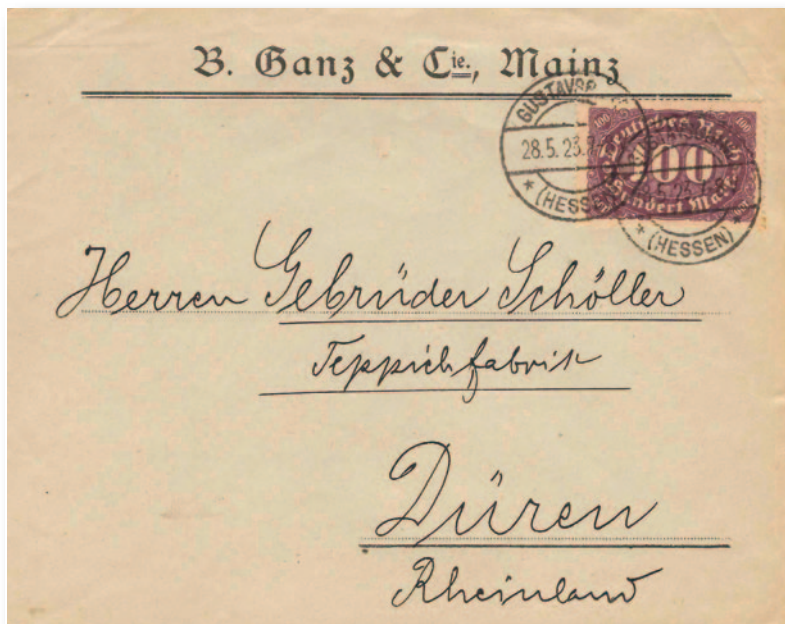 B. Ganz & Cie., Mainz
GUSTAVSB
28.5.23.7-
* (HESSEN)
100 100
Deutsches Reich
100
Hundert Mark
* (HESSEN) *
Herren Gebrüder Schöller
Teppichfabrik
Düren
Rheinland